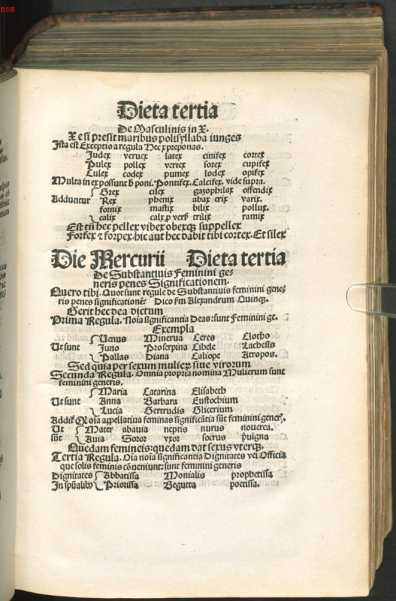 nos
Dieta tertia
De Masculinis in X.
X e si presit maribus polisyllaba iunges
Ista est Exceptio a regula Hec x preponas.
Judex veruex latex cinifex cortex
Pulex pollex vertex forex cupifex
Culex codex pumex lodex opifex
Multa in ex possunt h̄ poni. Pontifex. Calcifex. vide supra.
Grex cilex gazophilax offendix
Adduntur Rex phenix abax crix varix.
fornix mastix bilix pollux.
calix calx p versꝰ trilix ramix
Est tn̄ hec pellex vibex obexqꝫ suppellex
Forfex & forpex hic aut hec dabit tibi cortex. Et silex
Die Mercurii Dieta tertia
De Substantiuis Feminini ge-
neris penes Significationem.
Quero tibi. Quot sunt regule de Substantiuis feminini gene-
ris penes significationē? Dico scōm Alexandrum. Quinqꝫ.
Gerit hec dea dictum
Prima Regula. Noīa significantia Deas: sunt Feminini ge.
Exempla
Venus Minerua Ceres Clotho
Ut sunt Juno Proserpina Cibele Lachesis
Pallas Diana Caliope Atropos.
Sed quia per sexum mulier siue virorum
Secunda Regula. Omnia propria nomina Mulierum sunt
feminini generis.
Maria Catarina Elisabeth
Ut sunt Anna Barbara Eustochium
Lucia Gertrudis Glicerium
appellatiua feminas significātia sūt feminini
Ut Mater abauia neptis nurus nouerca.
sūt Auia Soror vxor socrus
Quedam femineis: quedam dat sexus vterqꝫ.
Tertia Regula. Oīa noīa significantia Dignitates vel Officia
que solis feminis cōueniunt: sunt feminini generis
Dignitates Abbatissa Monialis prophetissa
In Priorissa Begutta poetissa.